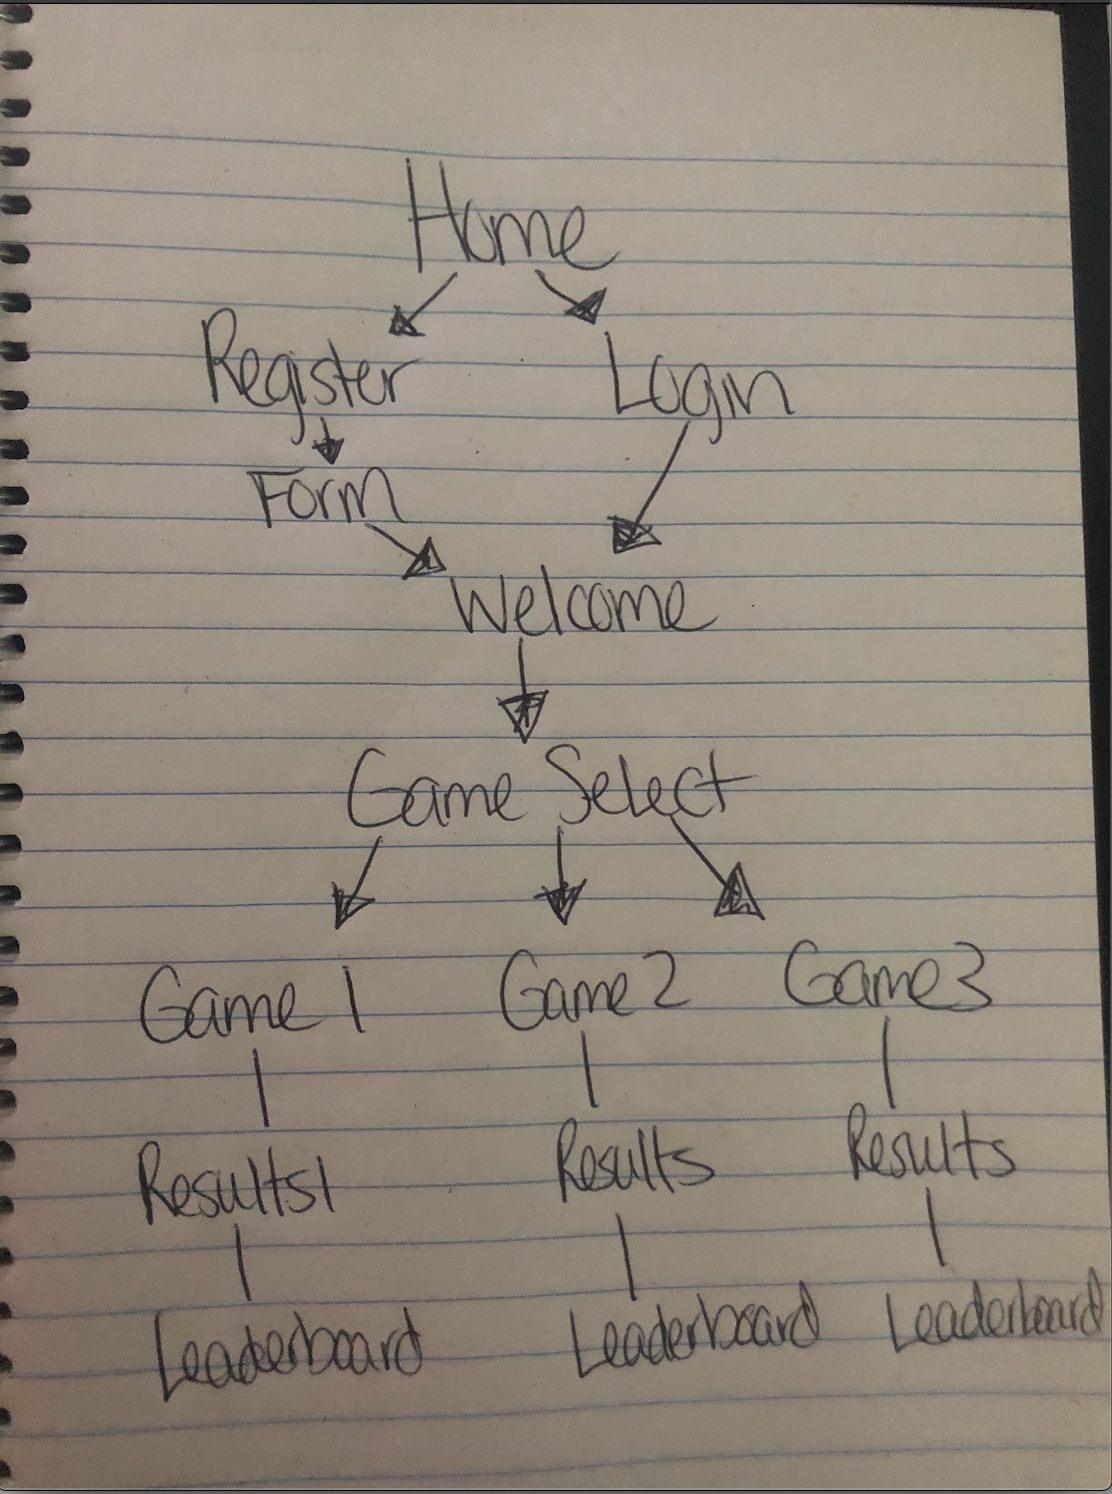 Home
Register Login
Form
Welcome
Game Select
Game 1 Game 2 Game 3
Results1 Results Results
Leaderboard Leaderboard Leaderboard